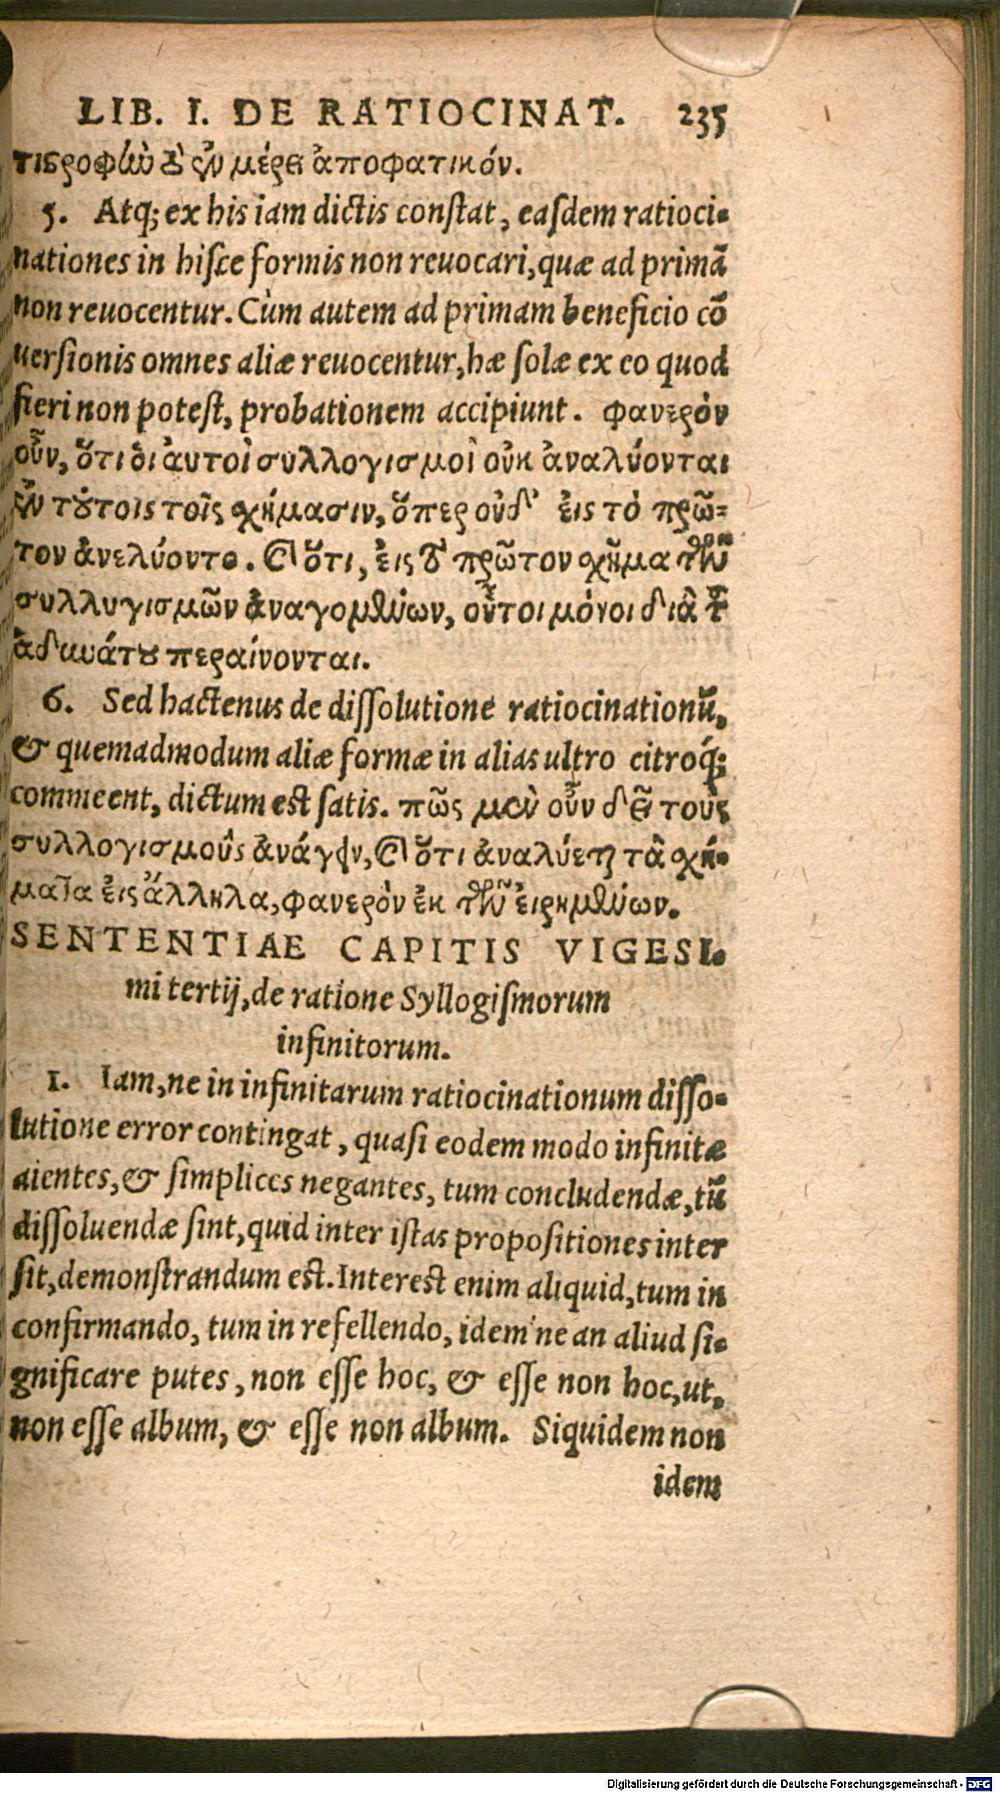 LIB. I. DE RATIOCINAT. 235
τιστροφὴν τὸ ἐν μέρει ἀποφατικόν.
5. Atq; ex his iam dictis constat, easdem ratioci-
nationes in hisce formis non reuocari, quæ ad primã
non reuocentur. Cùm autem ad primam beneficio cõ
uersionis omnes aliæ reuocentur, hæ solæ ex eo quod
fieri non potest, probationem accipiunt. φανερὸν
οὖν, ὅτι ὁι ἀυτοὶ συλλογισμοὶ οὐκ ἀναλύονται
ἐν τούτοις τοῖς χήμασιν, ὅπερ οὐδ' ἐις τὸ πρῶ-
τον ἀνελύοντο. καὶ ὅτι, ἐις τὸ πρῶτον χῆμα τῶν
συλλυγισμῶν ἀναγομένων, οὗτοι μόνοι διὰ τοῦ
ἀδυνάτου περαίνονται.
6. Sed hactenus de dissolutione ratiocinationũ,
& quemadmodum aliæ formæ in alias ultro citroq́;
commeent, dictum est satis. πῶς μὲν οὖν δεῖ τοὺς
συλλογισμοὺς ἀνάγειν, καὶ ὅτι ἀναλύεται τὰ χή-
ματα ἐις ἄλληλα, φανερὸν ἐκ τῶν ἐιρημένων.
SENTENTIAE CAPITIS VIGESI-
mi tertij, de ratione Syllogismorum
infinitorum.
1. Iam, ne in infinitarum ratiocinationum disso-
lutione error contingat, quasi eodem modo infinitæ
aientes, & simplices negantes, tum concludendæ, tũ
dissoluendæ sint, quid inter istas propositiones inter
sit, demonstrandum est. Interest enim aliquid, tum in
confirmando, tum in refellendo, idem'ne an aliud si-
gnificare putes, non esse hoc, & esse non hoc, ut,
non esse album, & esse non album. Siquidem non
idem
Digitalisierung gefördert durch die Deutsche Forschungsgemeinschaft - DFG